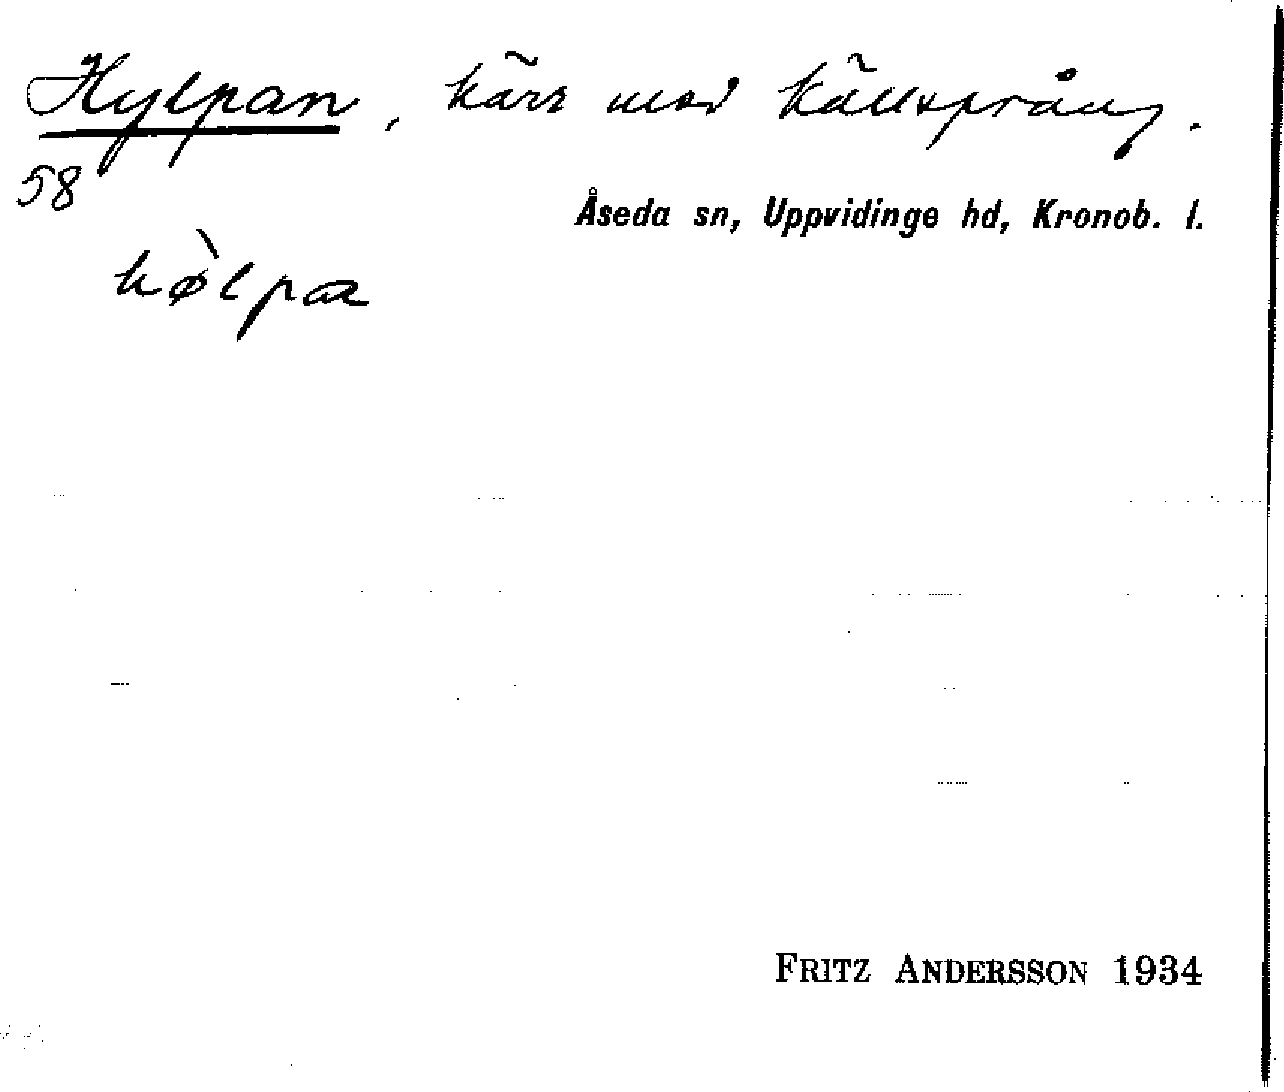 Hylpan, kärr med källsprång.
58
Åseda sn, Uppvidinge hd, Kronob. l.
hø̀lpa
FRITZ ANDERSSON 1934